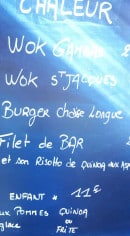 CHALEUR
WOK GAMBAS
WOK ST JACQUES
BURGER Choise Longue
Filet de BAR
et son Risotto de QUINOA AUX ASP
ENFANT * 11€
aux POMMES QUINOA
glace ou
FRITE